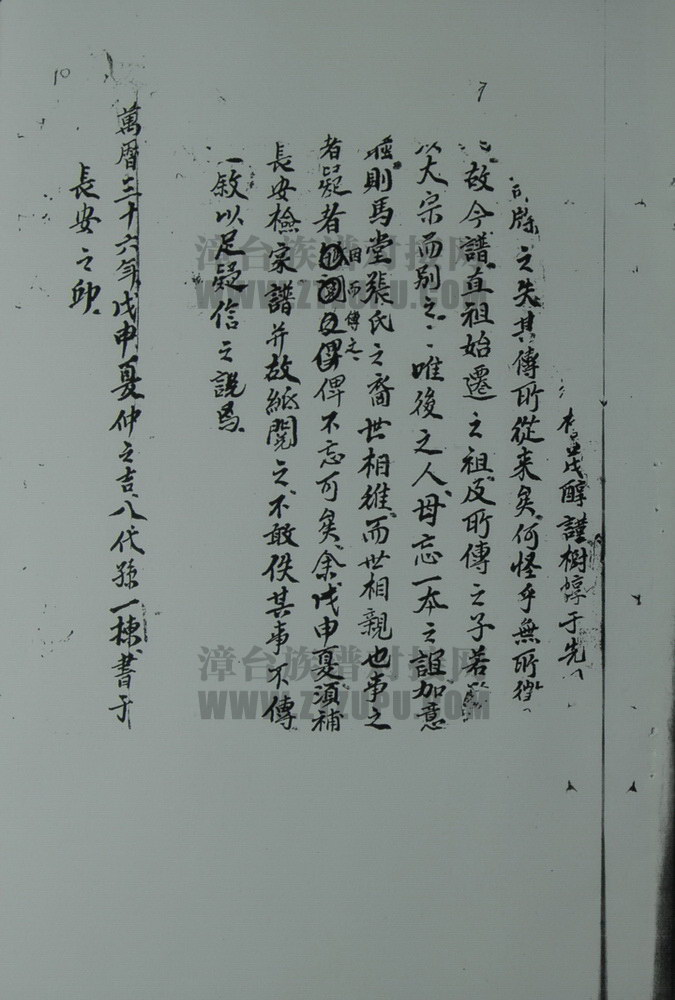 9
茂醇謹樹惇于先
之失其傳所從来矣何怪乎無所
故今譜直祖始遷之祖及所傳之子若
以大宗而別之唯後之人毋忘一本之誼加意
則馬堂張氏之裔世相維而世相親也事之
者疑者因而傳之俾不忘可矣余戊申夏須補
長安檢家譜并故紙閱之不敢佚其事不傳
一敘以足疑信之說焉
萬曆三十六年戊申夏仲之吉八代孫一棟書于
長安之邸
10
漳台族譜对接网
WWW.ZTZUPU.COM
漳台族譜对接网
WWW.ZTZUPU.COM